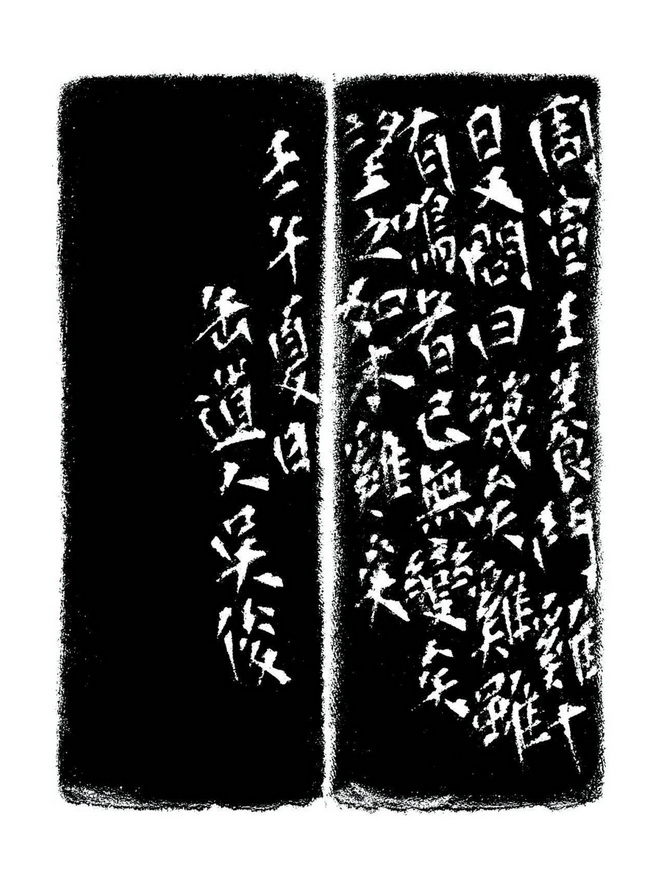 周宣王養鬥雞十
日又問曰幾矣雞雖
有鳴者已無變矣
望之如木雞矣
壬午夏日
缶道人吳俊